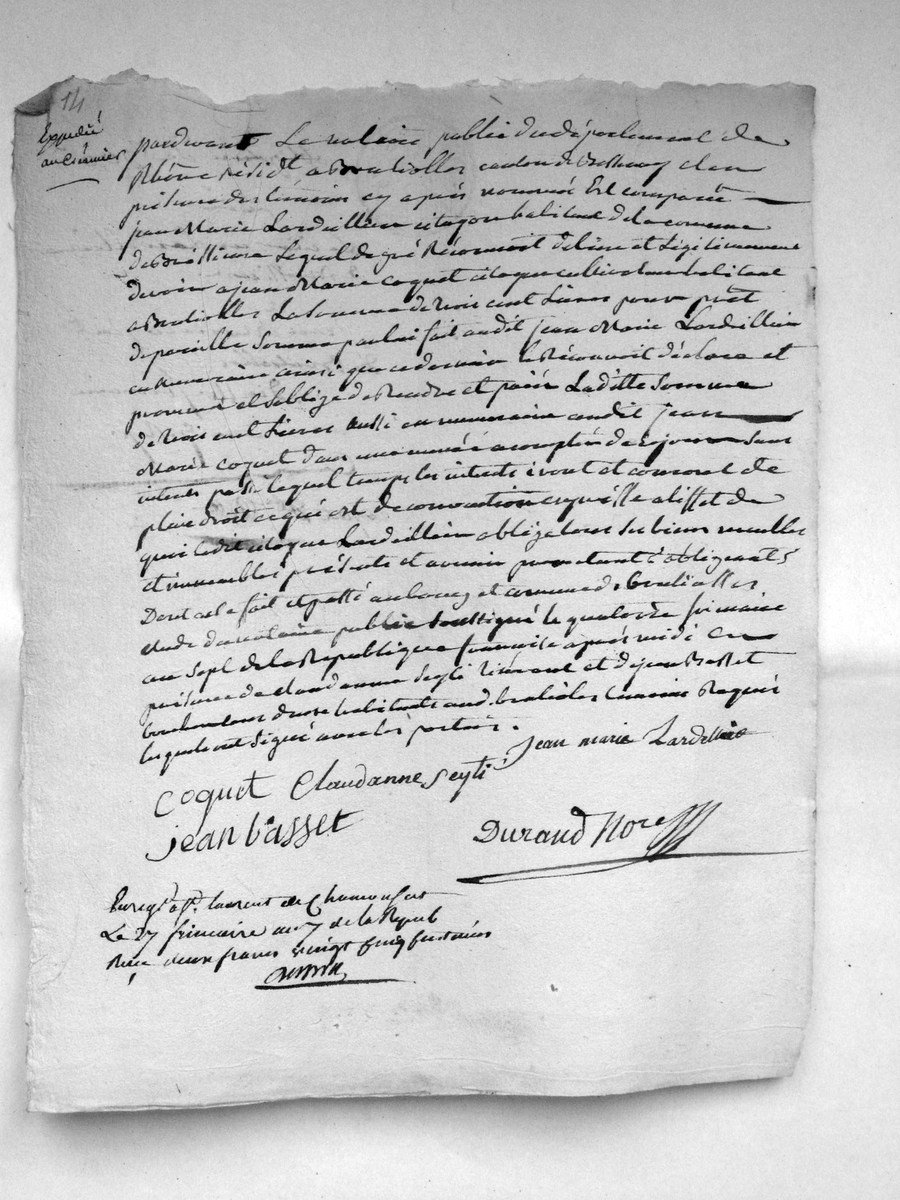 14
Expedié
au Créancier
pardevant Le notaire public du département de
Rhône résidt a Brulliolles canton de Bessenay et en
présence des témoins cy après nommés Est comparu
jean Marie Lardellier citoyen habitant de la commune
de Lequel de gré Reconnoit debvoir et Légitimement
devoir a jean Marie Coquet citoyen cultivateur habitant
a Bruliolles La somme de trois cent Livres pour prêt
de pareille Somme par lui fait audit jean Marie Lardellier
en numeraire ainsi que ce dernier le Reconnoit déclare et
promet et Soblige de Rendre et païer Laditte Somme
de trois cent Livres aussi en numeraire audit jean
Marie Coquet dans une année a compter de ce jour Sans
interets passé lequel temps les interets iront et couront de
plein droit ce qui est de convention expresse a l'effet de
quoi ledit citoyen Lardellier oblige tous ses biens meubles
et immeubles présents et avenir promettant obligeant &
Dont acte fait et passé au bourg et commune de brulliolles
etude du notaire public Soussigné le quatorze frimaire
an Sept de la Republique françoise après midi en
présence de claudanne Seyti et de jean Basset
habitants aud. brulioles temoins Requis
lesquels ont Signé avec les parties.
jean marie Lardellier
Coquet Claudanne Seyti
jean basset
Durand Nore
Enregé a St. laurent de Chamousset
Le 27 frimaire an 7 de la Repub
Reçu deux francs vingt cinq centimes